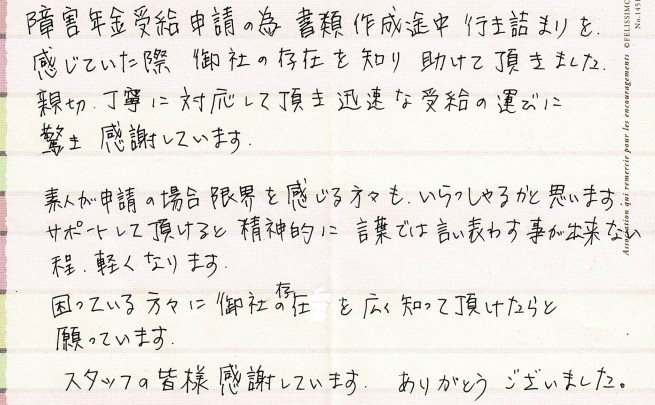 障害年金受給申請の為 書類作成途中 行き詰まりを
感じていた際 御社の存在を知り 助けて頂きました.
親切.丁寧に対応して頂き 迅速な受給の運びに
驚き 感謝しています.
素人が申請の場合 限界を感じる方々も.いらっしゃるかと思います
サポートして頂けると 精神的に 言葉では言い表わす事が出来ない
程.軽くなります.
困っている方々に御社の存在を広く知って頂けたらと
願っています.
スタッフの皆様 感謝しています. ありがとう ございました。
Association qui remercie pour les encouragements ©FELISSIMO